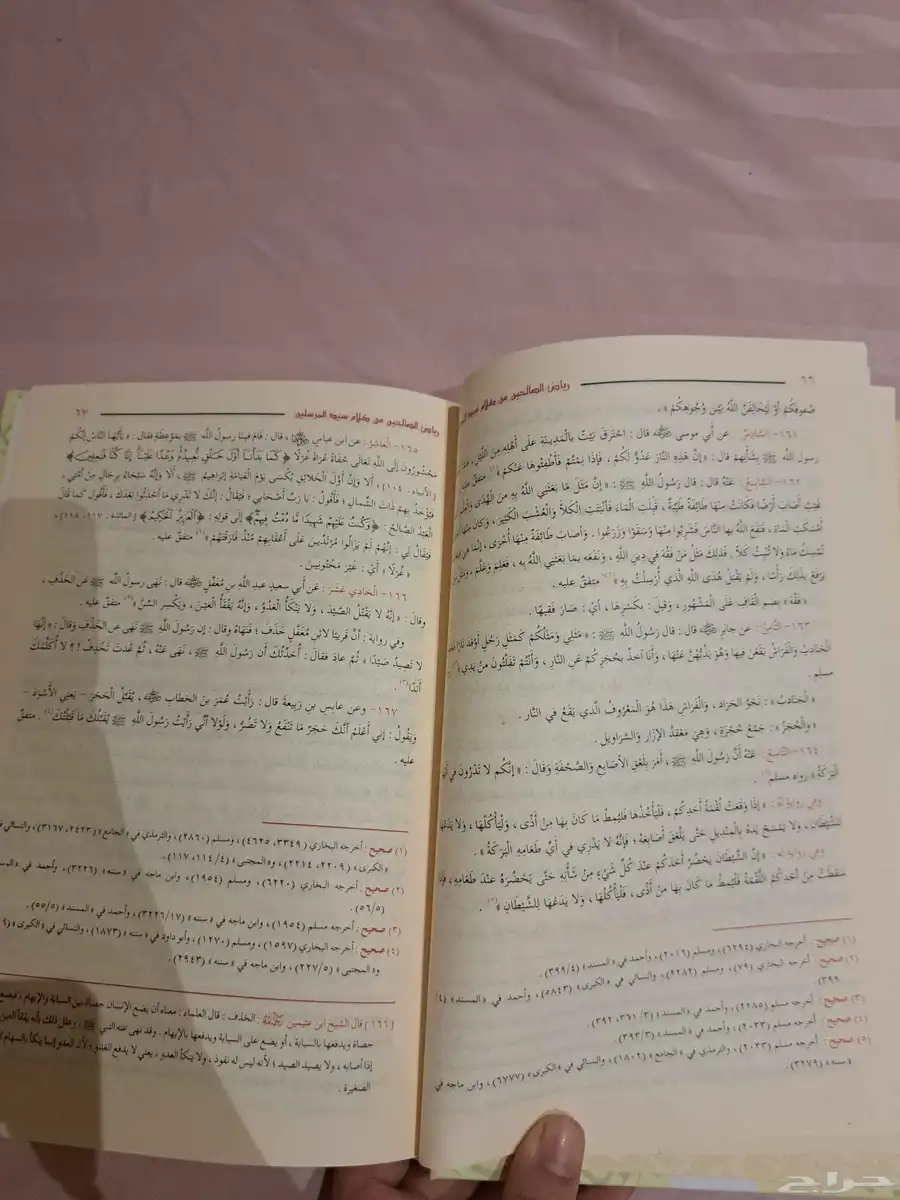 ٦٦ رياض الصالحين من كلام سيد
صُفُوفَكُمْ أَوْ لَيُخَالِفَنَّ اللَّهُ بَيْنَ وُجُوهِكُمْ».
١٦١- السَّادِسُ: عَن أَبي موسى ﷺ قال: احْتَرَقَ بَيْتٌ بالْمَدِينَةِ عَلَى أَهْلِهِ مِنَ اللَّيْلِ،
رسول اللَّهِ ﷺ بِشَأْنِهِمْ قال: «إنَّ هَذِهِ النَّارَ عَدُوٌّ لكُمْ، فَإِذَا نِمْتُمْ فَأَطْفِئُوهَا عَنْكُمْ»(١) متفقٌ
١٦٢- السَّابِعُ: عَنْهُ قال: قال رَسُولُ اللَّهِ ﷺ: «إنَّ مَثَلَ مَا بَعَثَنِي اللَّهُ بِهِ مِنَ الْهُدَى وَالْعِلْمِ
غَيْثٍ أَصَابَ أَرْضًا فكَانَتْ مِنْهَا طَائِفَةٌ طَيِّبَةٌ، قَبِلَتِ الْمَاءَ، فَأَنْبَتَتِ الْكَلأَ وَالْعُشْبَ الْكَثِيرَ، وَكَانَ مِنْهَا
أَمْسَكَتِ الْمَاءَ، فَنَفَعَ اللَّهُ بِها النَّاسَ فَشَرِبُوا مِنْهَا وَسَقَوْا وَزَرَعُوا. وَأَصَابَ طَائِفَةً مِنْهَا أُخْرَى، إنَّمَا هِيَ
تُمْسِكُ مَاءً وَلا تُنْبِتُ كَلأً. فَذَلِكَ مَثَلُ مَنْ فَقُهَ فِي دِينِ اللَّهِ، وَنَفَعَهُ بِمَا بَعَثَنِي اللَّهُ بِهِ، فَعَلِمَ وَعَلَّمَ، وَمَثَلُ مَنْ
يَرْفَعْ بِذَلِكَ رَأْسًا، وَلَمْ يَقْبَلْ هُدَى اللَّهِ الَّذي أُرْسِلْتُ بِهِ»(٢) متفقٌ عليه.
«فَقُهَ» بِضم القَافِ عَلَى الْمَشْهُورِ، وَقِيلَ: بِكَسْرِهَا، أَيْ: صَارَ فَقِيهًا.
١٦٣- الثَّامِنُ: عن جابرٍ ﷺ قال: قال رَسُولُ اللَّهِ ﷺ: «مَثَلِي وَمَثَلُكُمْ كَمَثَلِ رَجُلٍ أَوْقَدَ نَارًا
الْجَنَادِبُ وَالْفَرَاشُ يَقَعْنَ فِيهَا وَهُوَ يَذُبُّهُنَّ عَنْهَا، وَأَنَا آخِذٌ بِحُجَزِكُمْ عَنِ النَّارِ، وَأَنْتُمْ تَفَلَّتُونَ مِنْ يَدِي»(٣)
مسلم.
«الْجَنَادِبُ»: نَحْوُ الْجَرَادِ، وَالْفَرَاشِ هَذَا هُوَ الْمَعْرُوفُ الَّذي يَقَعُ في النَّارِ.
«وَالْحُجَزُ»: جَمْعُ حُجْزَةٍ، وَهِيَ مَعْقِدُ الإِزَارِ وَالسَّرَاوِيلِ.
١٦٤- التَّاسِعُ: عَنْهُ أَنَّ رَسُولَ اللَّهِ ﷺ، أَمَرَ بِلَعْقِ الأَصَابِعِ وَالصَّحْفَةِ وَقَالَ: «إنَّكُم لا تَدْرُونَ فِي
الْبَرَكَةُ» رواه مسلم(٤).
وفي رِوايَةٍ لَهُ: «إذَا وَقَعَتْ لُقْمَةُ أَحَدِكُمْ، فَلْيَأْخُذْهَا فَلْيُمِطْ مَا كَانَ بِهَا مِنْ أَذًى، وَلْيَأْكُلْهَا، وَلا يَدَعْهَا
لِلشَّيْطَانِ، وَلا يَمْسَحْ يَدَهُ بِالْمِنْدِيلِ حَتَّى يَلْعَقَ أَصَابِعَهُ؛ فَإِنَّهُ لا يَدْرِي في أَيِّ طَعَامِهِ الْبَرَكَةُ».
وفي رِوايَةٍ له: «إنَّ الشَّيْطَانَ يَحْضُرُ أَحَدَكُمْ عِنْدَ كُلِّ شَيْءٍ مِنْ شَأْنِهِ حَتَّى يَحْضُرَهُ عِنْدَ طَعَامِهِ، فَإِذَا
سَقَطَتْ مِنْ أَحَدِكُمُ اللُّقْمَةُ فَلْيُمِطْ مَا كَانَ بِهَا مِنْ أَذًى، فَلْيَأْكُلْهَا، وَلا يَدَعْهَا لِلشَّيْطَانِ»(٥).
(١) صحيح: أخرجه البخاري (٦٢٩٤)، ومسلم (٢٠١٦)، وأحمد في «المسند» (٣٩٩/٤).
(٢) صحيح: أخرجه البخاري (٧٩)، ومسلم (٢٢٨٢)، والنسائي في «الكبرى» (٥٨٤٣)، وأحمد في «المسند» (٤/
٣٩٩).
(٣) صحيح: أخرجه مسلم (٢٢٨٥)، وأحمد في «المسند» (٣٦١/٣، ٣٩٢).
(٤) صحيح: أخرجه مسلم (٢٠٣٣)، وأحمد في «المسند» (٣٩٣/٣).
(٥) صحيح: أخرجه مسلم (٢٠٣٣)، والترمذي في «الجامع» (١٨٠٢)، والنسائي في «الكبرى» (٦٧٧٧)، وابن ماجه في
«سننه» (٣٢٧٩).
رياض الصالحين من كلام سيد المرسلين ٦٧
١٦٥- الْعَاشِرُ: عن ابن عباسٍ ﷺ، قال: قَامَ فِينَا رسولُ اللَّه ﷺ بِمَوْعِظَةٍ فقال: «يَا أَيُّهَا النَّاسُ إِنَّكُمْ
مَحْشُورُونَ إلَى اللَّهِ تَعَالَى حُفَاةً عُرَاةً غُرْلًا ﴿كَمَا بَدَأْنَا أَوَّلَ خَلْقٍ نُعِيدُهُ وَعْدًا عَلَيْنَا إِنَّا كُنَّا فَاعِلِينَ﴾
[الأنبياء: ١٠٤]؛ أَلا وَإنَّ أَوَّلَ الْخَلائِقِ يُكْسَى يَوْمَ الْقِيَامَةِ إبْرَاهِيمُ ﷺ، أَلا وَإنَّهُ سَيُجَاءُ بِرِجَالٍ مِنْ أُمَّتِي،
فَيُؤْخَذُ بِهِمْ ذَاتَ الشِّمَالِ؛ فَأَقُولُ: يَا رَبِّ أَصْحَابِي؛ فَيُقَالُ: إنَّكَ لا تَدْرِي مَا أَحْدَثُوا بَعْدَكَ، فَأَقُولُ كما قال
الْعَبْدُ الصَّالِحُ: ﴿وَكُنْتُ عَلَيْهِمْ شَهِيدًا مَا دُمْتُ فِيهِمْ﴾ إلَى قولِهِ: ﴿الْعَزِيزُ الْحَكِيمُ﴾ [المائدة: ١١٧، ١١٨]
فَيُقَالُ لِي: إنَّهُمْ لَمْ يَزَالُوا مُرْتَدِّينَ عَلَى أَعْقَابِهِمْ مُنْذُ فَارَقْتَهُمْ»(١) متفقٌ عليه.
«غُرْلًا» أيْ: غَيْرَ مَخْتُونِينَ.
١٦٦- الْحَادِي عَشَرَ: عَنْ أَبي سعيدٍ عبدِ اللَّهِ بنِ مُغَفَّلٍ ﷺ قال: نَهَى رسولُ اللَّهِ ﷺ عَنِ الخَذْفِ،
وقالَ: «إنَّهُ لا يَقْتُلُ الصَّيْدَ، وَلا يَنْكَأُ الْعَدُوَّ، وَإِنَّهُ يَفْقَأُ الْعَيْنَ، وَيَكْسِرُ السِّنَّ»(٢) متفقٌ عليه.
وفي رواية: أنَّ قَرِيبًا لابْنِ مُغَفَّلٍ خَذَفَ؛ فَنَهَاهُ وقال: إن رسولَ اللَّهِ ﷺ نَهَى عن الخَذْفِ وَقَالَ: «إنَّهَا
لا تَصِيدُ صَيْدًا» ثُمَّ عادَ فقالَ: أُحَدِّثُكَ أن رسولَ اللَّهِ ﷺ، نَهَى عَنْهُ، ثُمَّ عُدْتَ تَخْذِفُ؟! لا أُكَلِّمُكَ
أَبَدًا(٣).
١٦٧- وعن عابسِ بن رَبِيعةَ قال: رَأَيْتُ عُمَرَ بنَ الخطاب ﷺ، يُقَبِّلُ الْحَجَرَ - يَعْنِي الأَسْوَدَ -
وَيَقُولُ: إني أَعْلَمُ أَنَّكَ حَجَرٌ مَا تَنْفَعُ وَلا تَضُرُّ، وَلَوْلا أنِّي رَأَيْتُ رسولَ اللَّهِ ﷺ يُقَبِّلُكَ مَا قَبَّلْتُكَ(٤). متفقٌ
عليه.
(١) صحيح: أخرجه البخاري (٣٣٤٩، ٤٦٢٥)، ومسلم (٢٨٦٠)، والترمذي في «الجامع» (٢٤٢٣، ٣١٦٧)، والنسائي
«الكبرى» (٢٢٠٩، ٢٢١٤)، و«المجتبى» (١١٤/٤، ١١٧).
(٢) صحيح: أخرجه البخاري (٦٢٢٠)، ومسلم (١٩٥٤)، وابن ماجه في «سننه» (٣٢٢٦)، وأحمد في
(٥٦/٥).
(٣) صحيح: أخرجه مسلم (١٩٥٤)، وابن ماجه في «سننه» (٣٢٢٦/١٧)، وأحمد في «المسند» (٥٥/٥).
(٤) صحيح: أخرجه البخاري (١٥٩٧)، ومسلم (١٢٧٠)، وأبو داود في «سننه» (١٨٧٣)، والنسائي في «الكبرى»
و«المجتبى» (٢٢٧/٥)، وابن ماجه في «سننه» (٢٩٤٣).
[١٦٦] قال الشيخ ابن عثيمين: الخذف: قال العلماء: معناه أن يضع الإنسان حصاة بين السبابة والإبهام، فيضع
حصاة ويدفعها بالسبابة، أو يضع على السبابة ويدفعها بالإبهام. وقد نهى عنه النبي ﷺ، وعلل ذلك بأنه يفقأ العين
إذا أصابه، ولا يصيد الصيد؛ لأنه ليس له نفوذ، ولا ينكأ العدو، يعني لا يدفع العدو؛ لأن العدو إنما ينكأ بالسهام لا
الصغيرة.
حراج